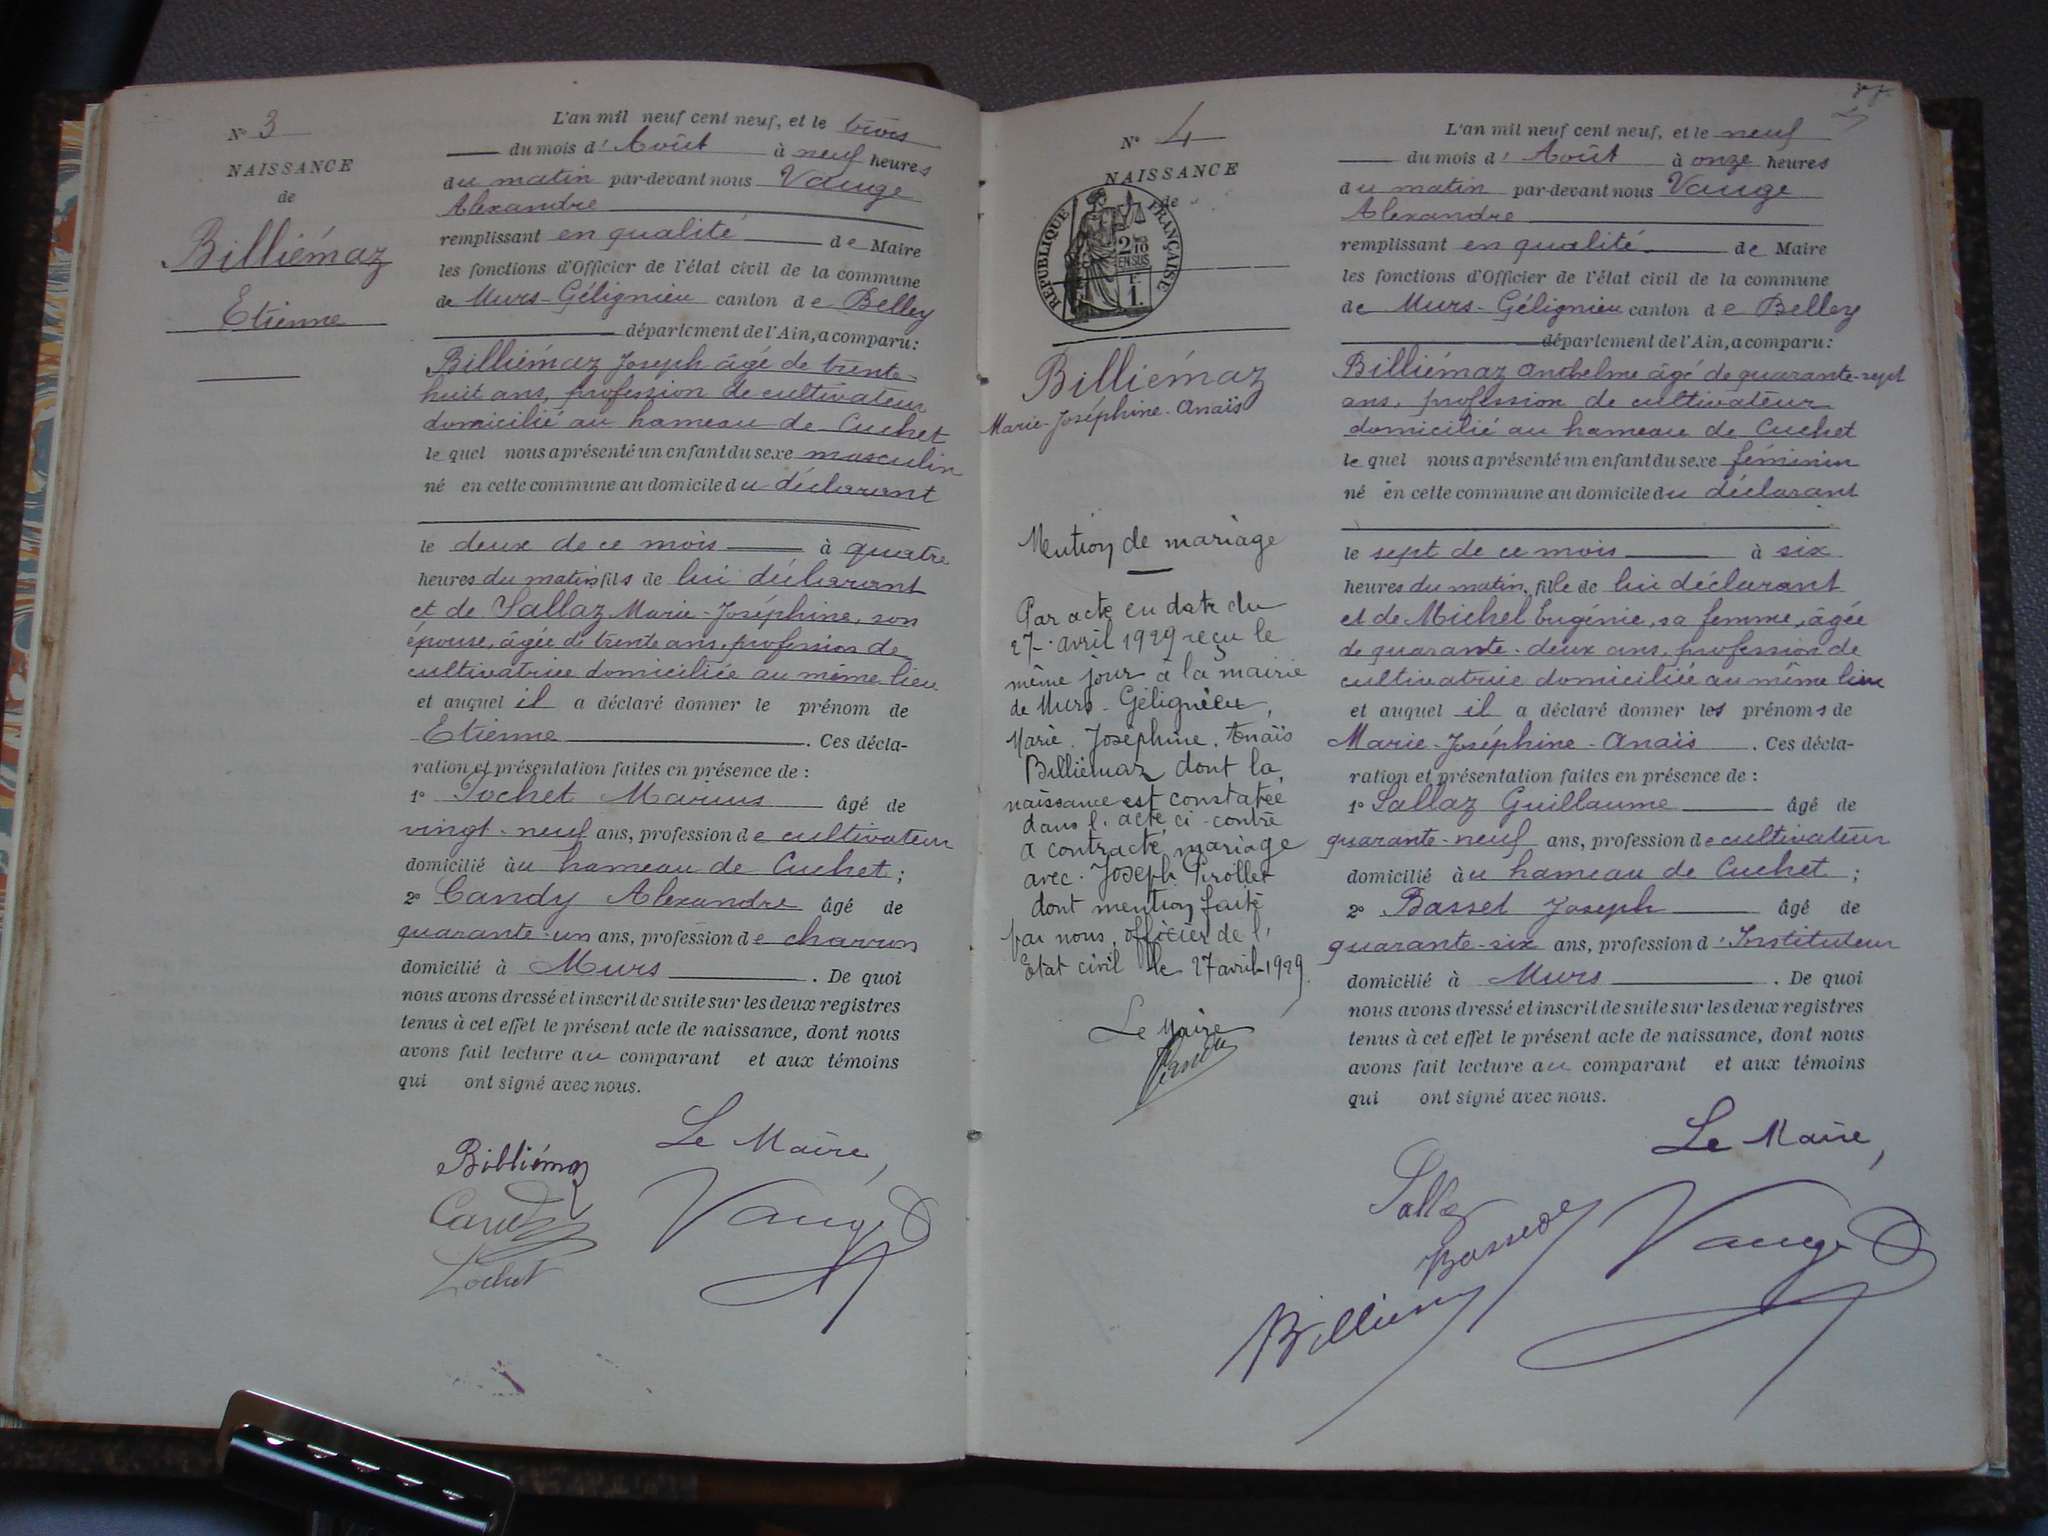 N° 3
NAISSANCE
de
Billiémaz
Etienne
L'an mil neuf cent neuf, et le trois
du mois d' Août à neuf heures
du matin par-devant nous Vauge
Alexandre
remplissant en qualité de Maire
les fonctions d'Officier de l'état civil de la commune
de Murs-Gélignieu canton de Belley
département de l'Ain, a comparu :
Billiémaz Joseph âgé de trente-
huit ans, profession de cultivateur
domicilié au hameau de Cuchet
le quel nous a présenté un enfant du sexe masculin
né en cette commune au domicile du déclarant
le deux de ce mois à quatre
heures du matin fils de lui déclarant
et de Sallaz Marie-Joséphine, son
épouse, âgée de trente ans, profession de
cultivatrice domiciliée au même lieu
et auquel il a déclaré donner le prénom de
Etienne . Ces décla-
ration et présentation faites en présence de :
1° Lochet Marius âgé de
vingt-neuf ans, profession de cultivateur
domicilié au hameau de Cuchet ;
2° Candy Alexandre âgé de
quarante-un ans, profession de charron
domicilié à Murs . De quoi
nous avons dressé et inscrit de suite sur les deux registres
tenus à cet effet le présent acte de naissance, dont nous
avons fait lecture au comparant et aux témoins
qui ont signé avec nous.
Le Maire,
Billiémaz
Candy
Lochet
Vauge
N° 4
NAISSANCE
de
RÉPUBLIQUE FRANÇAISE
2/10
EN SUS
F.
1.
Billiémaz
Marie-Joséphine-Anaïs
Mention de mariage
Par acte en date du
27 avril 1929 reçu le
même jour à la mairie
de Murs-Gélignieu,
Marie. Joséphine. Anaïs
Billiémaz dont la
naissance est constatée
dans l'acte ci-contre
a contracté mariage
avec Joseph Pirollet
dont mention faite
par nous, officier de l'
Etat civil le 27 avril 1929
Le Maire
L'an mil neuf cent neuf, et le neuf
du mois d' Août à onze heures
du matin par-devant nous Vauge
Alexandre
remplissant en qualité de Maire
les fonctions d'Officier de l'état civil de la commune
de Murs-Gélignieu canton de Belley
département de l'Ain, a comparu :
Billiémaz Anthelme âgé de quarante-sept
ans, profession de cultivateur
domicilié au hameau de Cuchet
le quel nous a présenté un enfant du sexe féminin
né en cette commune au domicile du déclarant
le sept de ce mois à six
heures du matin, fille de lui déclarant
et de Michel Eugénie, sa femme, âgée
de quarante-deux ans, profession de
cultivatrice domiciliée au même lieu
et auquel il a déclaré donner les prénoms de
Marie-Joséphine-Anaïs . Ces décla-
ration et présentation faites en présence de :
1° Sallaz Guillaume âgé de
quarante-neuf ans, profession de cultivateur
domicilié au hameau de Cuchet ;
2° Basset Joseph âgé de
quarante-six ans, profession d'Instituteur
domicilié à Murs . De quoi
nous avons dressé et inscrit de suite sur les deux registres
tenus à cet effet le présent acte de naissance, dont nous
avons fait lecture au comparant et aux témoins
qui ont signé avec nous.
Le Maire,
Sallaz
Basset
Vauge
Billiémaz